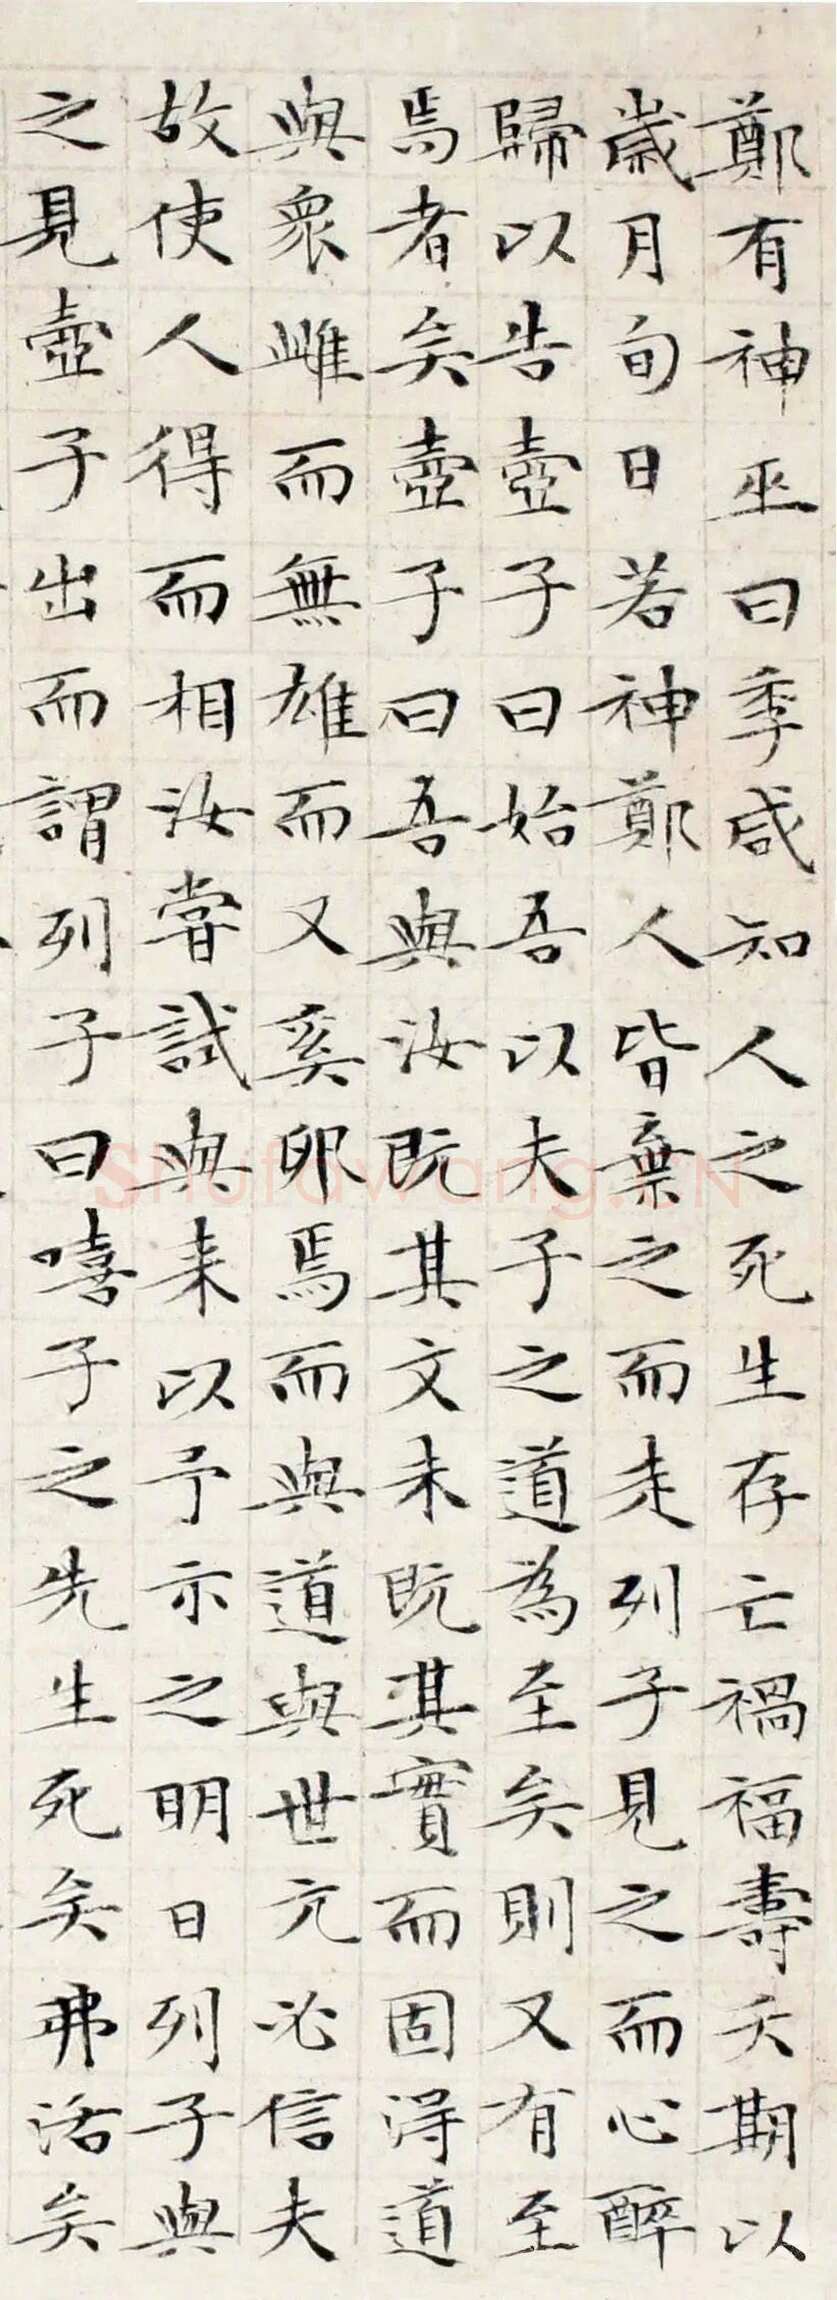 鄭有神巫曰季咸知人之死生存亡禍福壽夭期以
歲月旬日若神鄭人皆棄之而走列子見之而心醉
歸以告壺子曰始吾以夫子之道為至矣則又有至
焉者矣壺子曰吾與汝既其文未既其實而固得道
與眾雌而無雄而又奚卵焉而與道與世亢必信夫
故使人得而相汝嘗試與来以予示之明日列子與
之見壺子出而謂列子曰嘻子之先生死矣弗活矣
Shufawang.CN